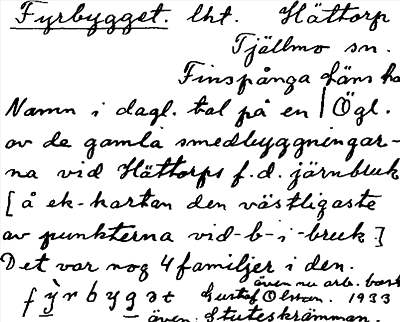 Fyrbygget. lht. Hättorp
Tjällmo sn.
Finspånga läns hd
Namn i dagl. tal på en | Ögl.
av de gamla smedbyggningar-
na vid Hättorps f.d. järnbruk
[å ek-kartan den västligaste
av punkterna vid -b- i -bruk.]
Det var nog 4 familjer i den.
även nu arb. bost
fỳrbygət Gustaf Olsson. 1933
även: Stuteskrämman.